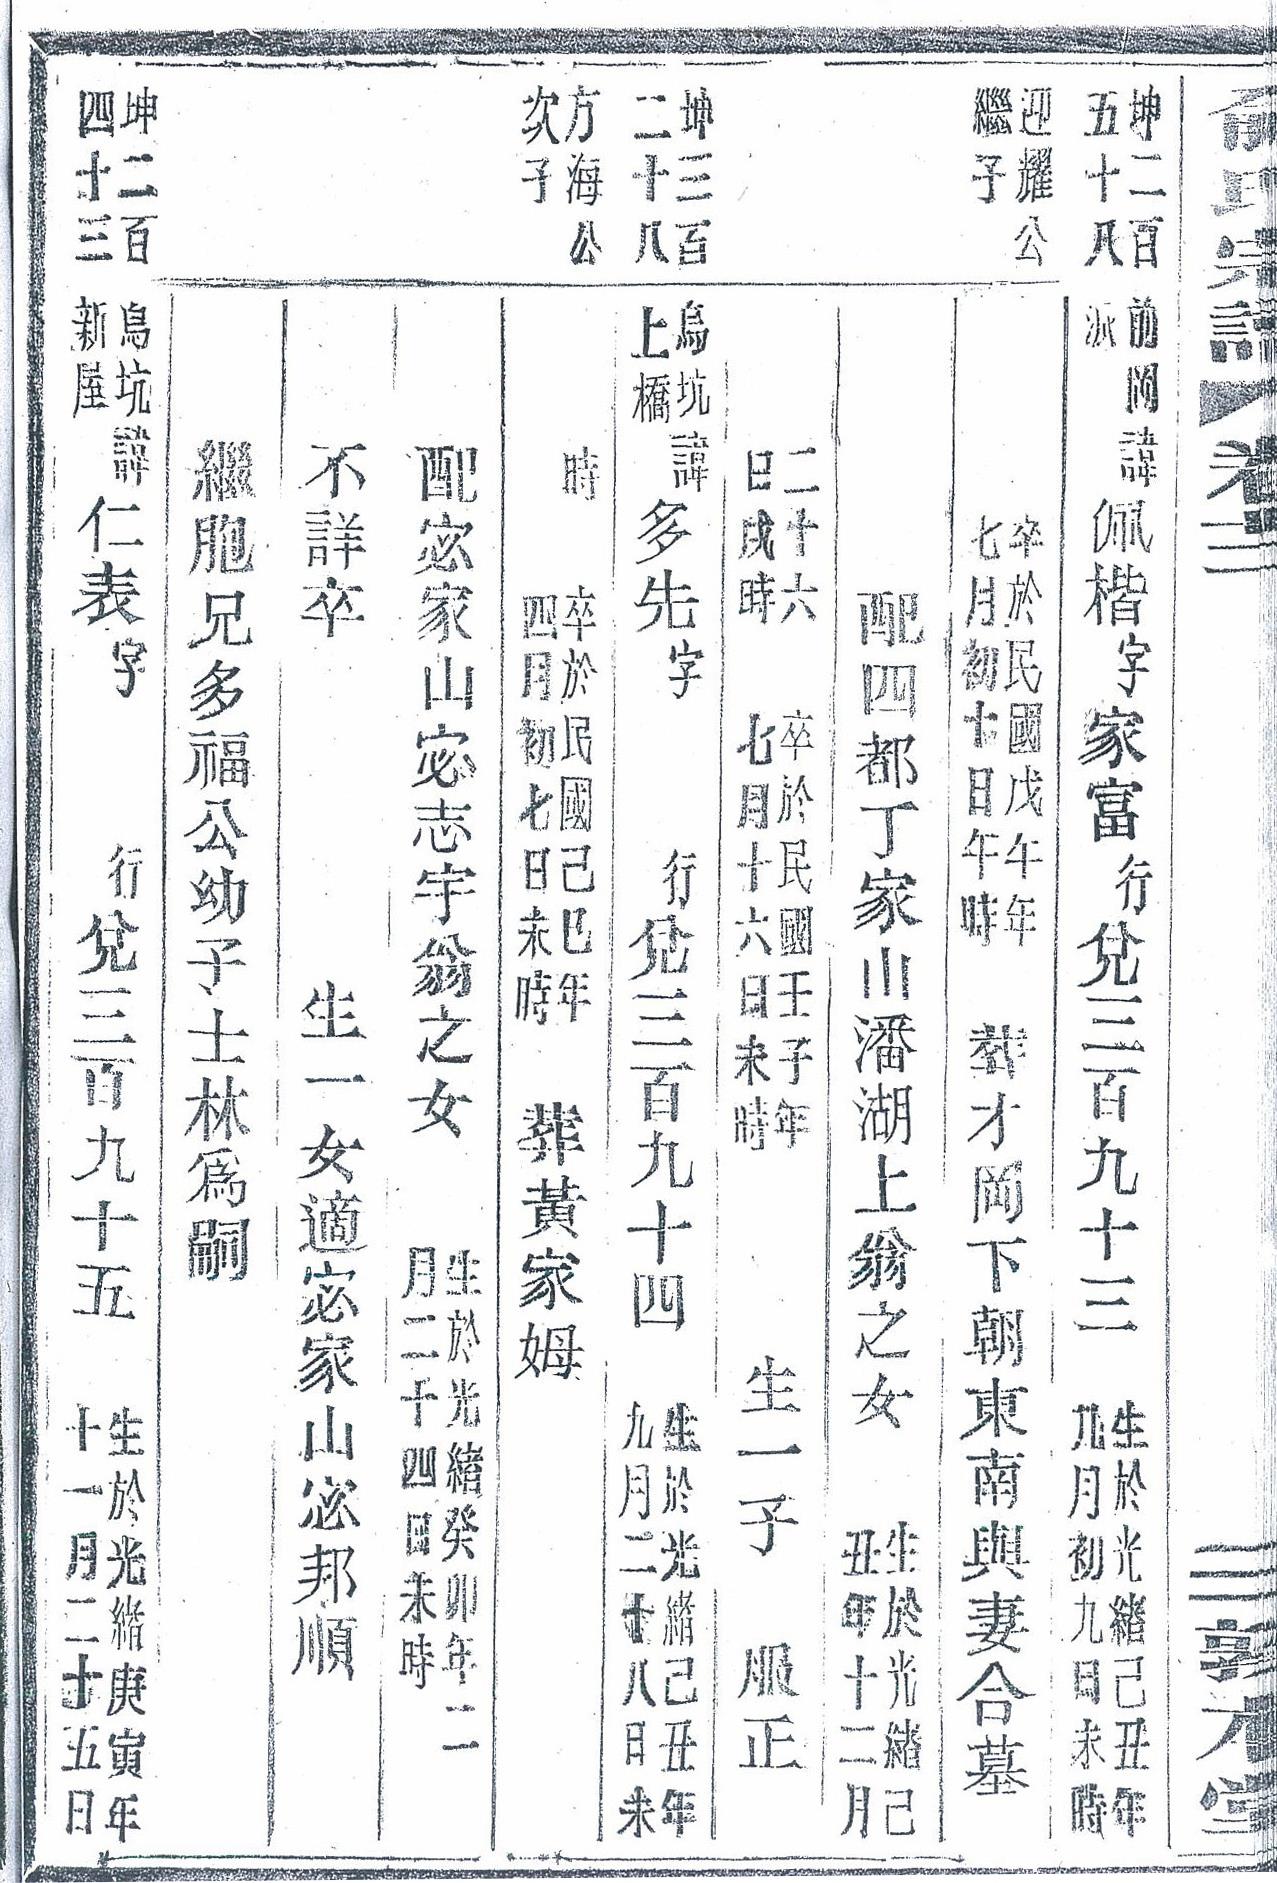 俞氏宗譜 卷三 三 敦本堂
坤二百五十八 前岡派 諱佩楷 字家富 行兌三百九十三 生於光緒己丑年九月初九日未時
迎耀公繼子 卒於民國戊午年七月初十日午時 葬才岡下朝東南與妻合墓
配四都丁家山潘湖上翁之女 生於光緒己丑年十二月
二十六日戌時 卒於民國壬子年七月十六日未時 生一子 服正
坤三百二十八 烏坑上橋 諱多先 字 行兌三百九十四 生於光緒己丑年九月二十八日未
方海公次子 時 卒於民國己巳年四月初七日未時 葬黃家姆
配宓家山宓志宇翁之女 生於光緒癸卯年二月二十四日未時
不詳卒 生一女適宓家山宓邦順
繼胞兄多福公幼子士林爲嗣
坤二百四十三 烏坑新屋 諱仁表 字 行兌三百九十五 生於光緒庚寅年十一月二十五日